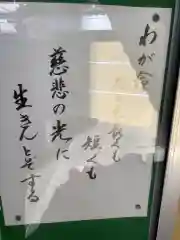 わが命
長くも
短くも
慈悲の光に
生きんとぞする